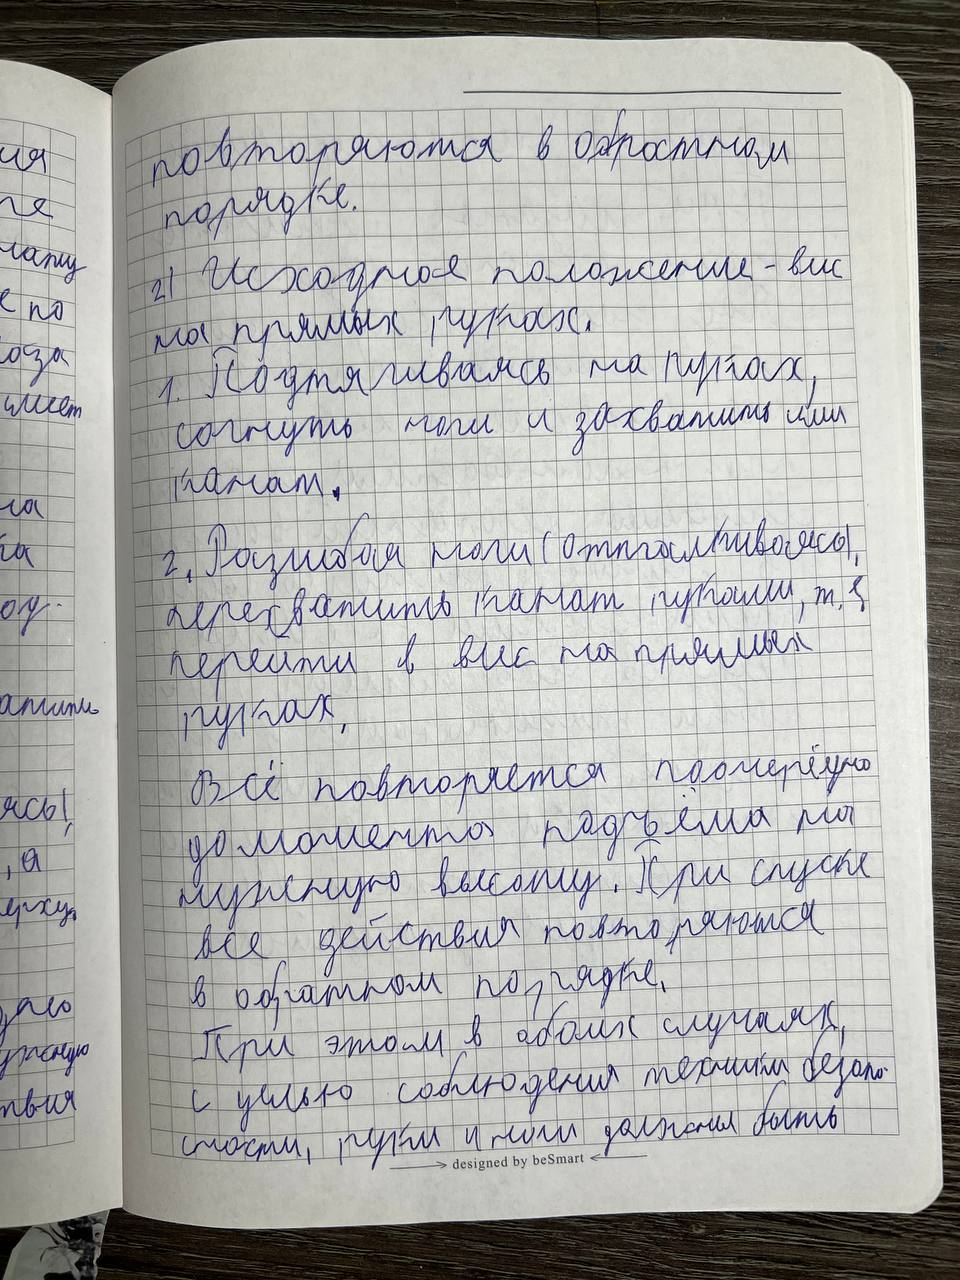 ия
пе
нату
е по
оза
имеет
на
та
од.
атить
ясь),
, а
ерху.
ужную
твия
повторяются в обратном
порядке.
2) Исходное положение - вис
на прямых руках.
1. Подтягиваясь на руках,
согнуть ноги и захватить ими
канат.
2. Разгибая ноги (отталкиваясь),
перехватить канат руками, т. е
перейти в вис на прямых
руках.
Всё повторяется поочерёдно
до момента подъёма на
нужную высоту. При спуске
все действия повторяются
в обратном порядке.
При этом в обоих случаях,
с целью соблюдения техники безопа-
сности, руки и ноги должны быть
designed by beSmart